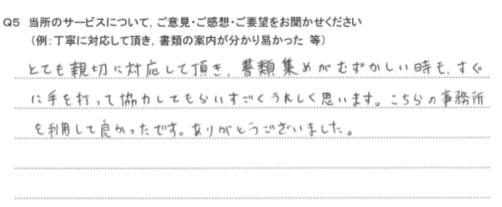 Q5 当所のサービスについて，ご意見・ご感想・ご要望をお聞かせください
（例：丁寧に対応して頂き，書類の案内が分かり易かった 等）
とても親切に対応して頂き、書類集めがむずかしい時も、すぐ
に手を打って協力してもらいすごくうれしく思います。こちらの事務所
を利用して良かったです。ありがとうございました。